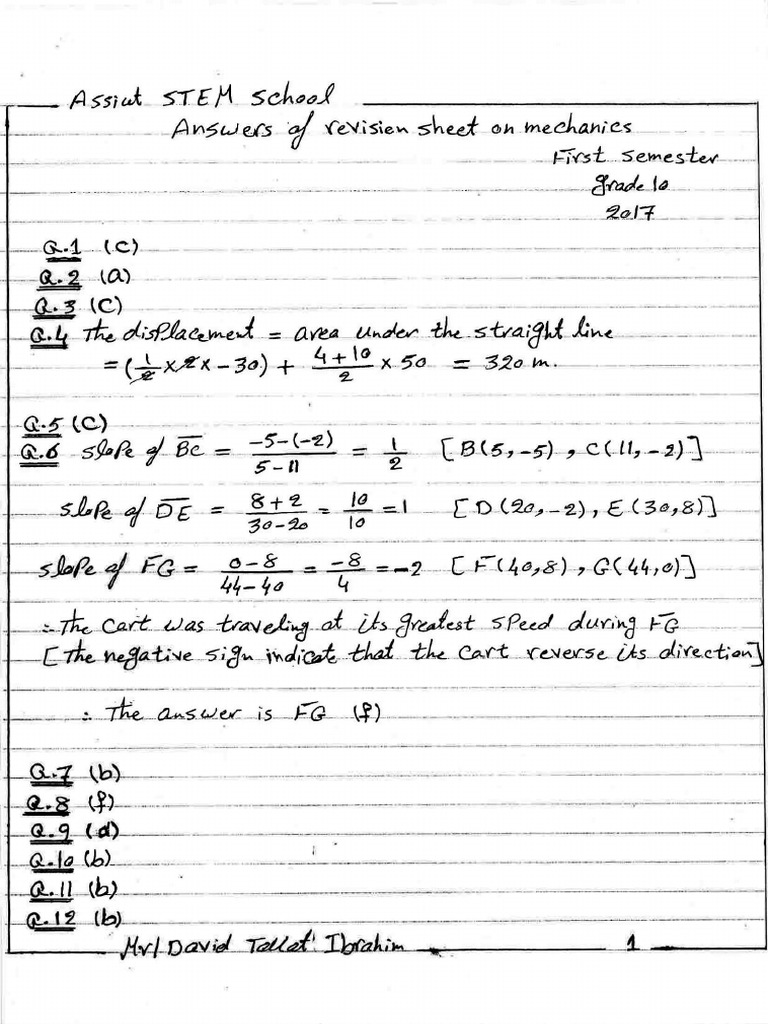 Assiut STEM School
Answers of revision sheet on mechanics
First semester
grade 10
2017
Q.1 (c)
Q.2 (a)
Q.3 (C)
Q.4 The displacement = area under the straight line
= (1/2 × 2 × -30) + (4+10)/2 × 50 = 320 m.
Q.5 (C)
Q.6 slope of BC = (-5-(-2))/(5-11) = 1/2 [B(5,-5), C(11,-2)]
slope of DE = (8+2)/(30-20) = 10/10 = 1 [D(20,-2), E(30,8)]
slope of FG = (0-8)/(44-40) = -8/4 = -2 [F(40,8), G(44,0)]
∴ The cart was traveling at its greatest speed during FG
[The negative sign indicate that the cart reverse its direction]
∴ The answer is FG (f)
Q.7 (b)
Q.8 (f)
Q.9 (d)
Q.10 (b)
Q.11 (b)
Q.12 (b)
Mr/ David Tallat Ibrahim 1